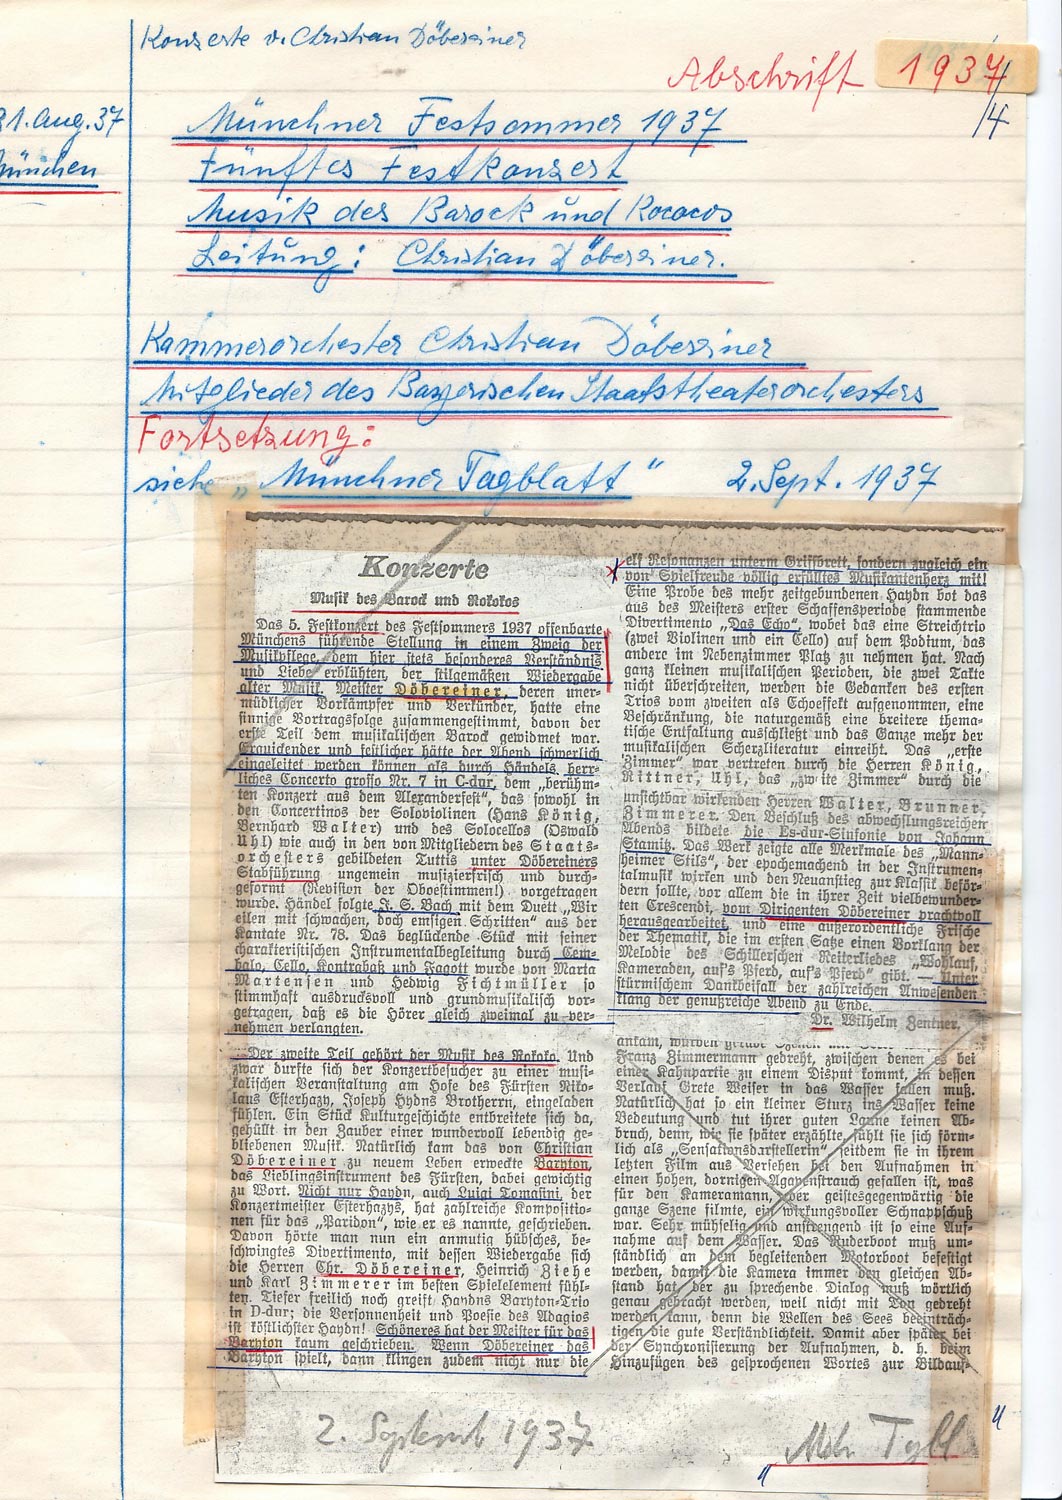 Konzerte v. Christian Döbereiner
Abschrift 1937/4
31. Aug. 37
München
Münchner Festsommer 1937
Fünftes Festkonzert
Musik des Barock und Rococos
Leitung: Christian Döbereiner.
Kammerorchester Christian Döbereiner
Mitglieder des Bayerischen Staatstheaterorchesters
Fortsetzung:
siehe „Münchner Tagblatt" 2. Sept. 1937
Konzerte
Musik des Barock und Rokokos
Das 5. Festkonzert des Festsommers 1937 offenbarte
Münchens führende Stellung in einem Zweig der
Musikpflege, dem hier stets besonderes Verständnis
und Liebe erblühten, der stilgemäßen Wiedergabe
alter Musik. Meister Döbereiner, deren uner-
müdlicher Vorkämpfer und Verkünder, hatte eine
sinnige Vortragsfolge zusammengestimmt, davon der
erste Teil dem musikalischen Barock gewidmet war.
Erquickender und festlicher hätte der Abend schwerlich
eingeleitet werden können als durch Händels herr-
liches Concerto grosso Nr. 7 in C-dur, dem „berühm-
ten Konzert aus dem Alexanderfest", das sowohl in
den Concertinos der Soloviolinen (Hans König,
Bernhard Walter) und des Solocellos (Oswald
Uhl) wie auch in den von Mitgliedern des Staats-
orchesters gebildeten Tuttis unter Döbereiners
Stabführung ungemein musizierfrisch und durch-
geformt (Revision der Oboestimmen!) vorgetragen
wurde. Händel folgte J. S. Bach mit dem Duett „Wir
eilen mit schwachen, doch emsigen Schritten" aus der
Kantate Nr. 78. Das beglückende Stück mit seiner
charakteristischen Instrumentalbegleitung durch Cem-
balo, Cello, Kontrabaß und Fagott wurde von Marta
Martensen und Hedwig Fichtmüller so
stimmhaft ausdrucksvoll und grundmusikalisch vor-
getragen, daß es die Hörer gleich zweimal zu ver-
nehmen verlangten.
Der zweite Teil gehört der Musik des Rokoko. Und
zwar durfte sich der Konzertbesucher zu einer musi-
kalischen Veranstaltung am Hofe des Fürsten Niko-
laus Esterhazy, Joseph Hydns Brotherrn, eingeladen
fühlen. Ein Stück Kulturgeschichte entbreitete sich da,
gehüllt in den Zauber einer wundervoll lebendig ge-
bliebenen Musik. Natürlich kam das von Christian
Döbereiner zu neuem Leben erweckte Baryton,
das Lieblingsinstrument des Fürsten, dabei gewichtig
zu Wort. Nicht nur Haydn, auch Luigi Tomasini, der
Konzertmeister Esterhazys, hat zahlreiche Kompositio-
nen für das „Paridon", wie er es nannte, geschrieben.
Davon hörte man nun ein anmutig hübsches, be-
schwingtes Divertimento, mit dessen Wiedergabe sich
die Herren Chr. Döbereiner, Heinrich Ziehe
und Karl Zimmerer im besten Spielelement fühl-
ten. Tiefer freilich noch greift Haydns Baryton-Trio
in D-dur; die Versonnenheit und Poesie des Adagios
ist köstlichster Haydn! Schöneres hat der Meister für das
Baryton kaum geschrieben. Wenn Döbereiner das
Baryton spielt, dann klingen zudem nicht nur die
elf Resonanzen unterm Griffbrett, sondern zugleich ein
von Spielfreude völlig erfülltes Musikantenherz mit!
Eine Probe des mehr zeitgebundenen Haydn bot das
aus des Meisters erster Schaffensperiode stammende
Divertimento „Das Echo", wobei das eine Streichtrio
(zwei Violinen und ein Cello) auf dem Podium, das
andere im Nebenzimmer Platz zu nehmen hat. Nach
ganz kleinen musikalischen Perioden, die zwei Takte
nicht überschreiten, werden die Gedanken des ersten
Trios vom zweiten als Echoeffekt aufgenommen, eine
Beschränkung, die naturgemäß eine breitere thema-
tische Entfaltung ausschließt und das Ganze mehr der
musikalischen Scherzliteratur einreiht. Das „erste
Zimmer" war vertreten durch die Herren König,
Rittner, Uhl, das „zweite Zimmer" durch die
unsichtbar wirkenden Herren Walter, Brunner,
Zimmerer. Den Beschluß des abwechslungsreichen
Abends bildete die Es-dur-Sinfonie von Johann
Stamitz. Das Werk zeigte alle Merkmale des „Mann-
heimer Stils", der epochemachend in der Instrumen-
talmusik wirken und den Neuanstieg zur Klassik beför-
dern sollte, vor allem die in ihrer Zeit vielbewunder-
ten Crescendi, vom Dirigenten Döbereiner prachtvoll
herausgearbeitet, und eine außerordentliche Frische
der Thematik, die im ersten Satze einen Vorklang der
Melodie des Schillerschen Reiterliedes „Wohlauf,
Kameraden, auf's Pferd, auf's Pferd" gibt. — Unter
stürmischem Dankbeifall der zahlreichen Anwesenden
klang der genußreiche Abend zu Ende.
Dr. Wilhelm Zentner.
ankam, wurden
Franz Zimmermann gedreht, zwischen denen es bei
einer Kahnpartie zu einem Disput kommt, in dessen
Verlauf Grete Weiser in das Wasser fallen muß.
Natürlich hat so ein kleiner Sturz ins Wasser keine
Bedeutung und tut ihrer guten Laune keinen Ab-
bruch, denn, wie sie später erzählte, fühlt sie sich förm-
lich als „Sensationsdarstellerin", seitdem sie in ihrem
letzten Film aus Versehen bei den Aufnahmen in
einen hohen, dornigen Agavenstrauch gefallen ist, was
für den Kameramann, der geistesgegenwärtig die
ganze Szene filmte, ein wirkungsvoller Schnappschuß
war. Sehr mühselig und anstrengend ist so eine Auf-
nahme auf dem Wasser. Das Ruderboot muß um-
ständlich an dem begleitenden Motorboot befestigt
werden, damit die Kamera immer den gleichen Ab-
stand hat, der zu sprechende Dialog muß wörtlich
genau gebracht werden, weil nicht mit Ton gedreht
werden kann, denn die Wellen des Sees beeinträch-
tigen die gute Verständlichkeit. Damit aber später bei
der Synchronisierung der Aufnahmen, d. h. beim
Hinzufügen des gesprochenen Wortes zur Bildauf-
2. September 1937
„Mchn Tgbl"